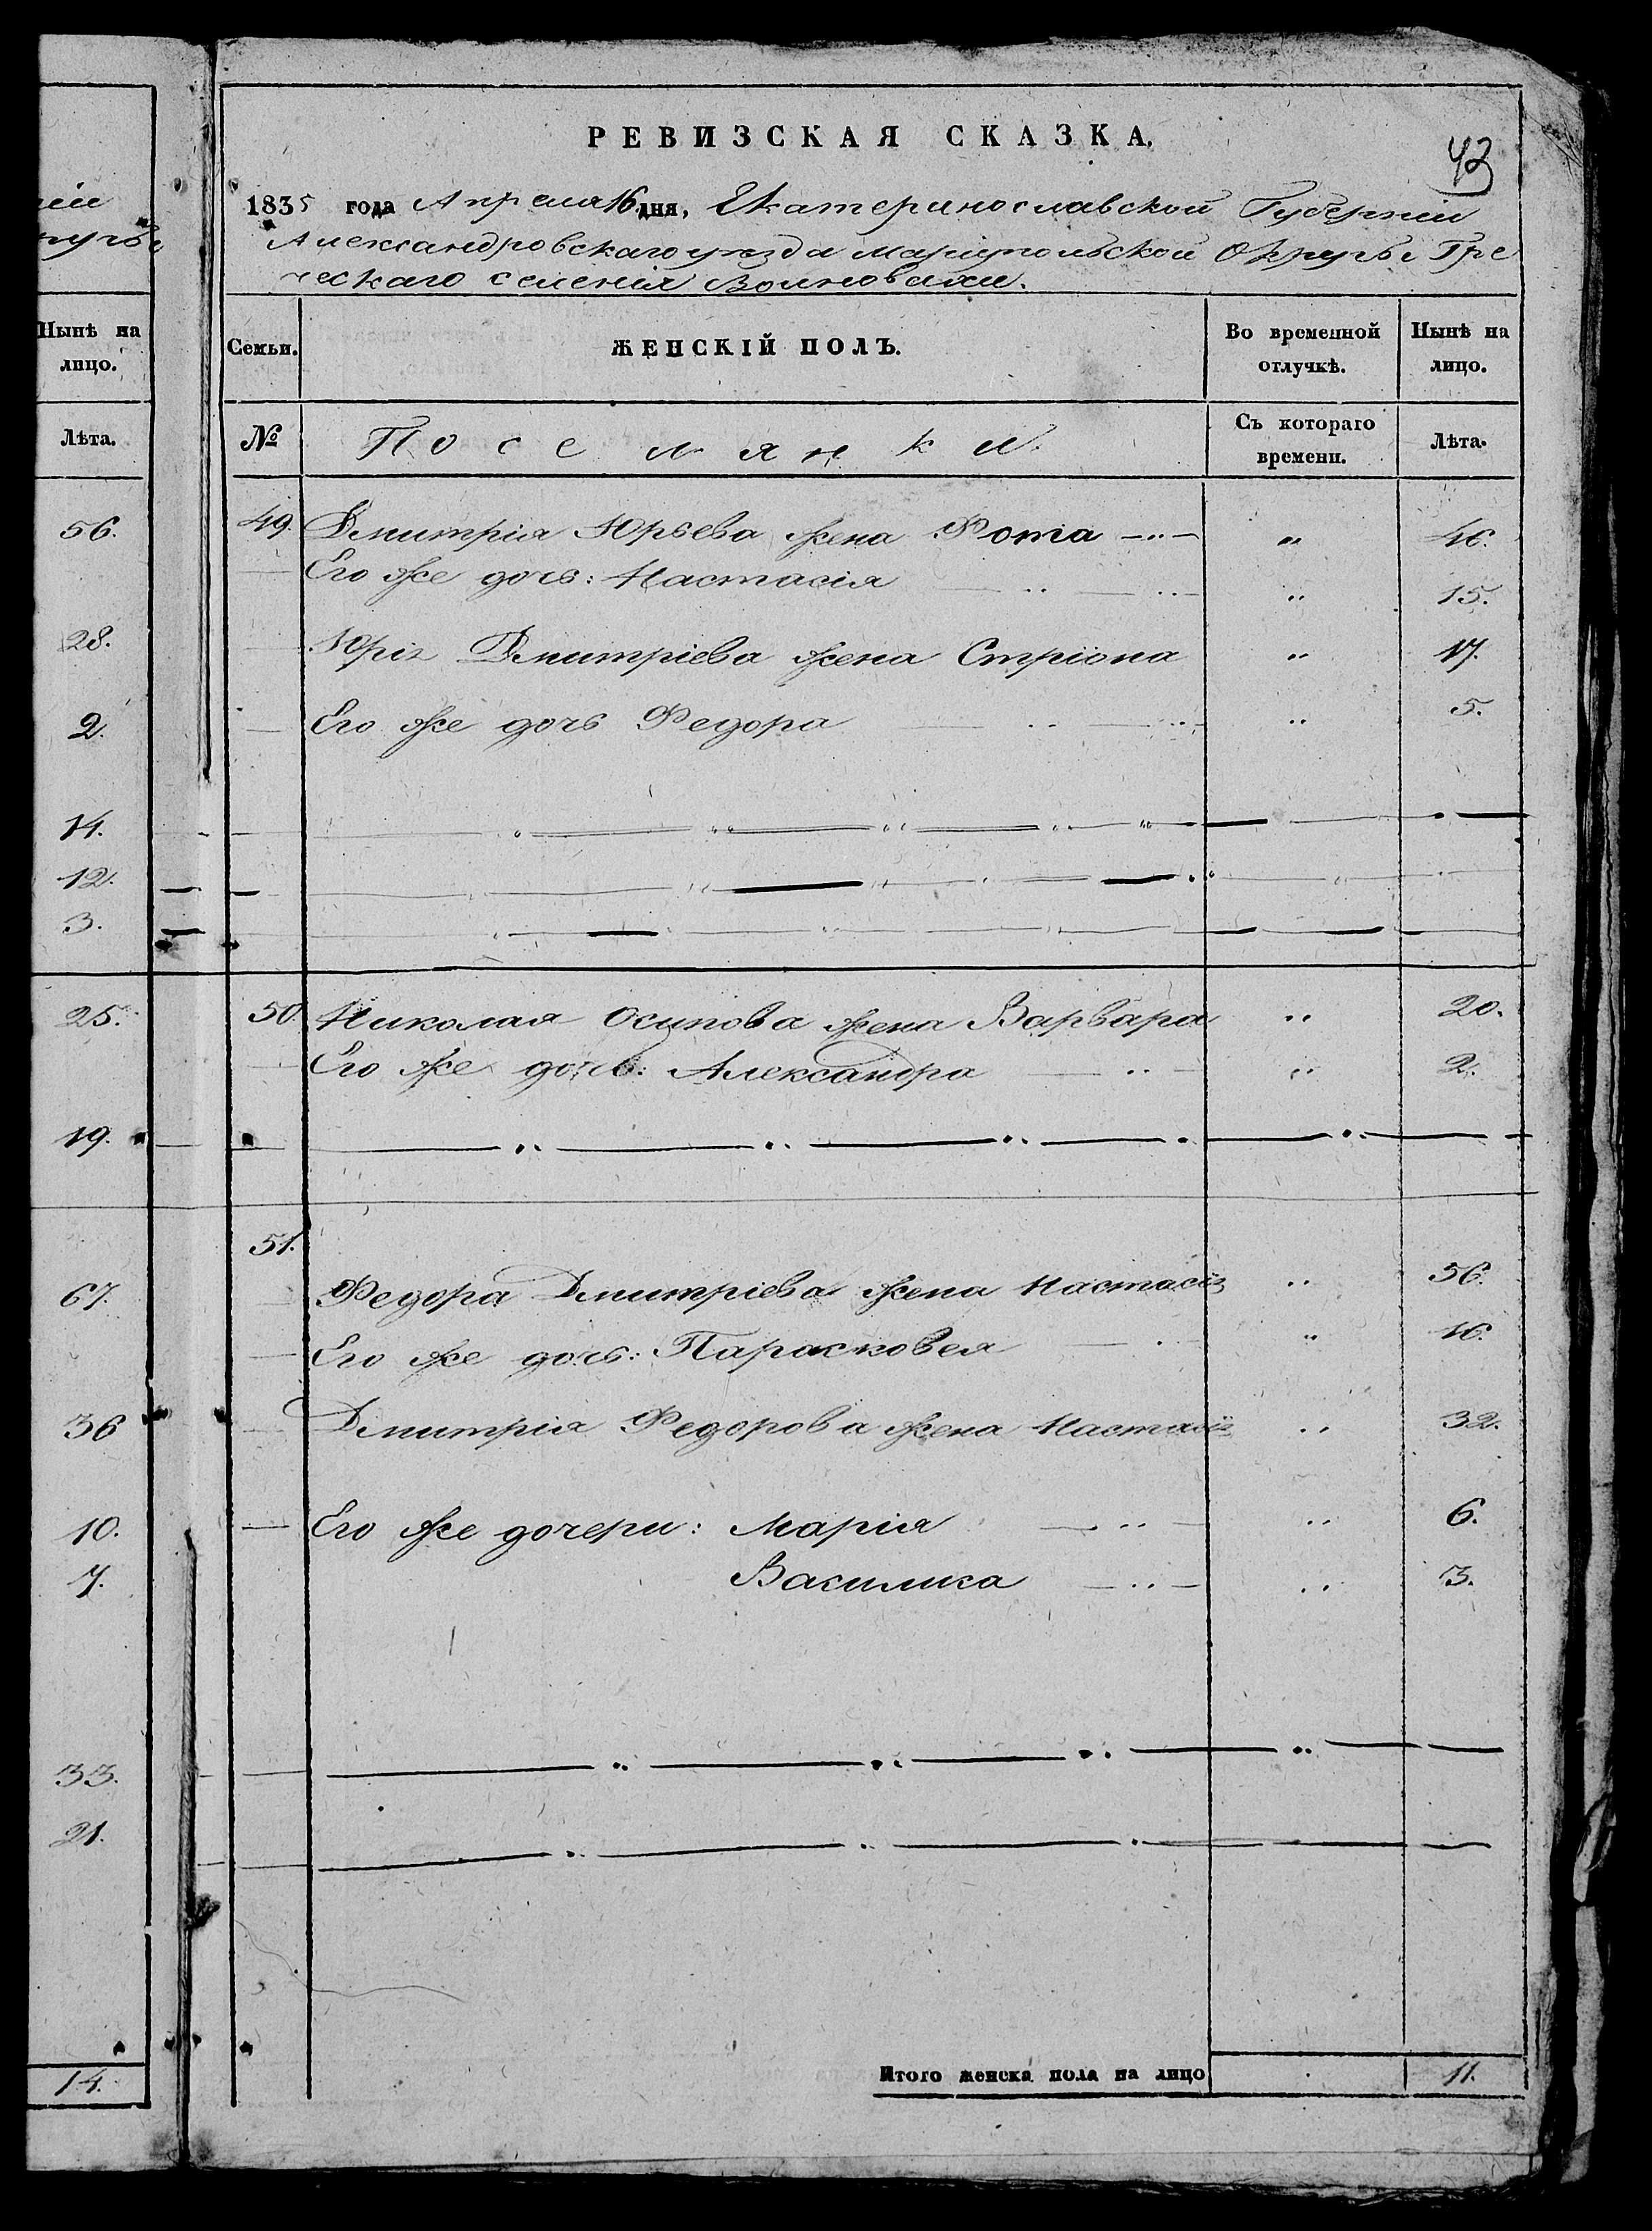 ніи
руга
Нынѣ на
лицо.
Лѣта.
56.
28.
2.
14.
12.
3.
25.
19.
67.
36
10.
7.
33.
21.
14.
РЕВИЗСКАЯ СКАЗКА.
43
1835 года Апреля 16 дня, Екатеринославской Губерніи
Александровскаго уезда Маріупольской Округы Гре
ческаго селенія Волновахи.
Семьи. ЖЕНСКІЙ ПОЛЪ. Во временной отлучкѣ. Нынѣ на лицо.
№ Поселянки Съ котораго времени. Лѣта.
49. Дмитрія Юрьева жена Фотіа —"— " 46.
Его же дочь: Настасія " 15.
Юрія Дмитріева жена Стріона " 17.
Его же дочь Федора " 5.
50. Николая Осипова жена Варвара " 20.
Его же дочь: Александра " 2.
51.
Федора Дмитріева жена Настасія " 56.
Его же дочь: Парасковея " 16.
Дмитрія Федорова жена Настасія " 32.
Его же дочери: Марія " 6.
Василика " 3.
Итого женска пола на лицо 11.